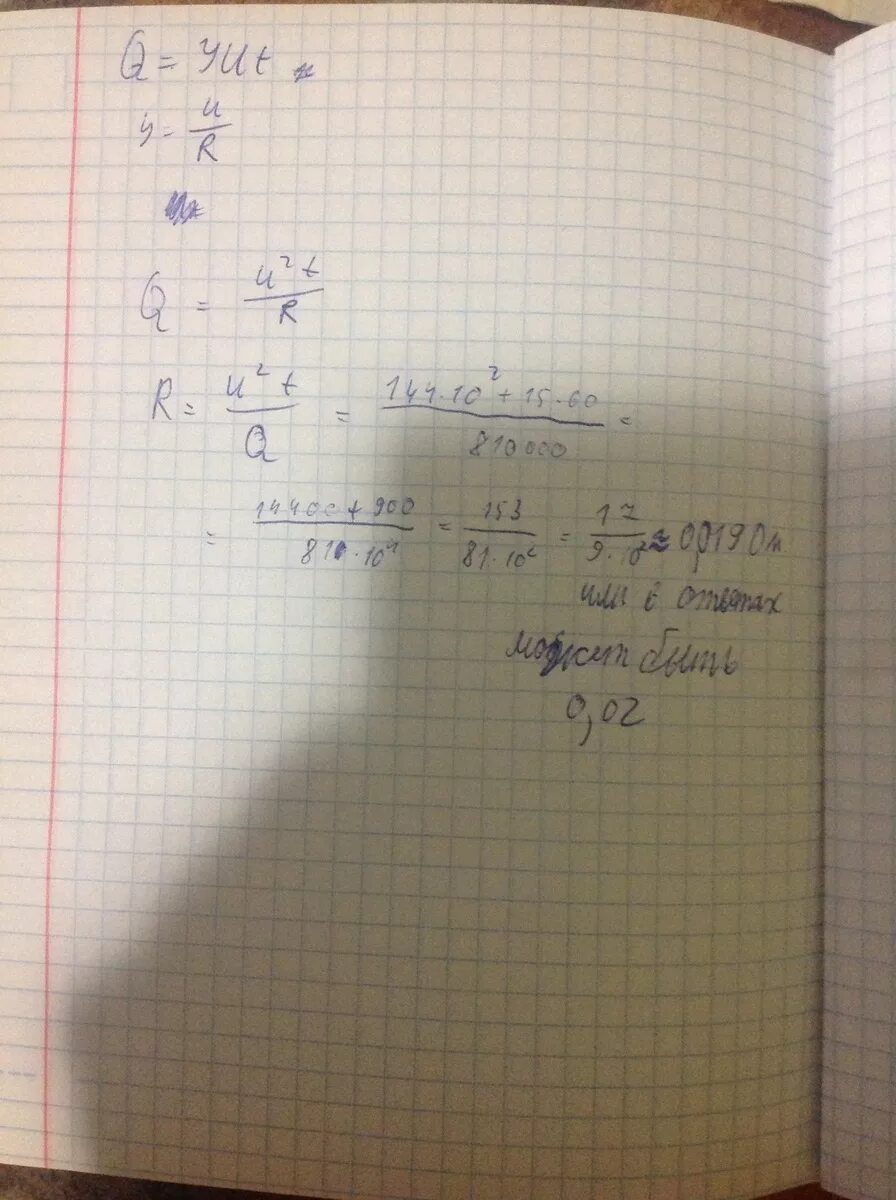 Q = УUt
У = u/R
Q = u² t / R
R = u² t / Q = 144·10² + 15·60 / 810000 =
= 14400 + 900 / 81·10⁴ = 153 / 81·10² = 17 / 9·10² ≈ 0,019 Ом
или в ответах
может быть
0,02